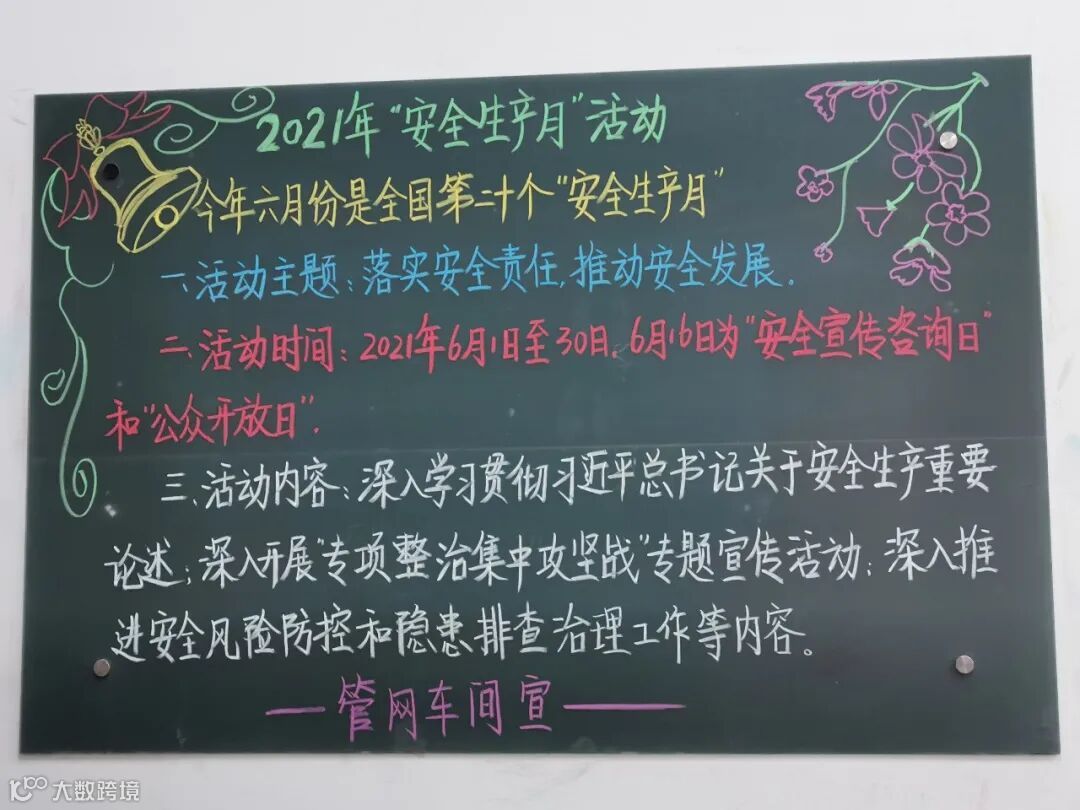 2021年“安全生产月”活动
今年六月份是全国第二十个“安全生产月”
一、活动主题：落实安全责任，推动安全发展.
二、活动时间：2021年6月1日至30日，6月16日为“安全宣传咨询日”
和“公众开放日”.
三、活动内容：深入学习贯彻习近平总书记关于安全生产重要
论述；深入开展“专项整治集中攻坚战”专题宣传活动；深入推
进安全风险防控和隐患排查治理工作等内容。
——管网车间宣——
大数跨境